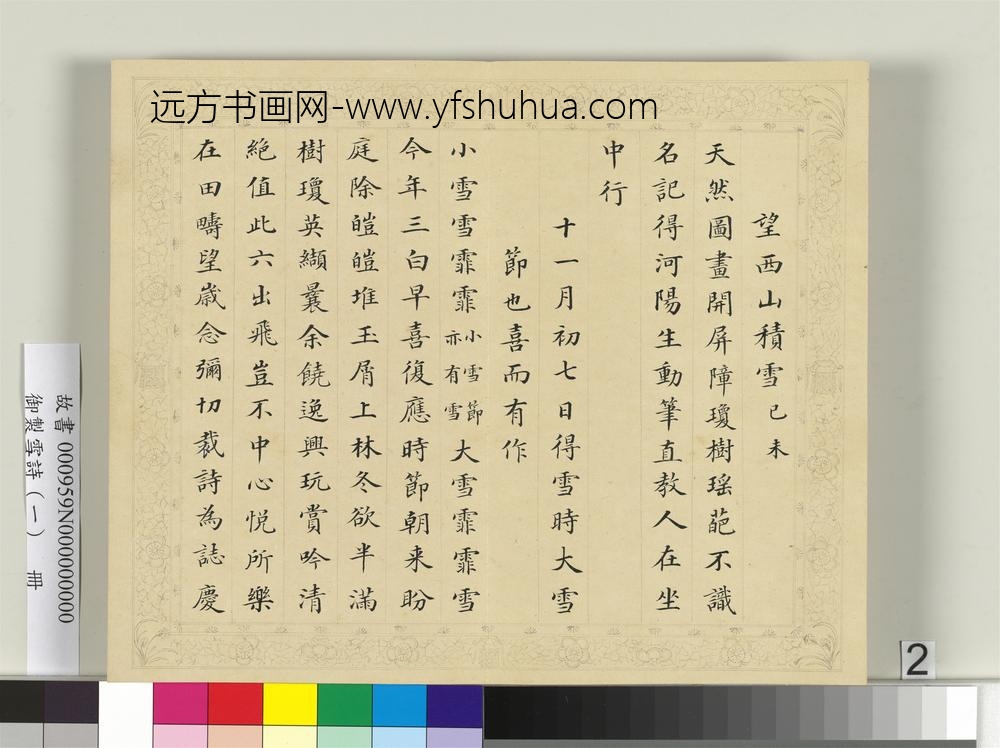 远方书画网-www.yfshuhua.com
望西山積雪己未
天然圖畫開屏障瓊樹瑶葩不識
名記得河陽生動筆直教人在坐
中行
十一月初七日得雪時大雪
節也喜而有作
小雪雪霏霏小雪節亦有雪大雪霏霏雪
今年三白早喜復應時節朝来盼
庭除皚皚堆玉屑上林冬欲半滿
樹瓊英纈曩余饒逸興玩賞吟清
絶值此六出飛豈不中心悦所樂
在田疇望嵗念彌切裁詩為誌慶
故書 000959N000000000
御製雪詩(一) 冊
2